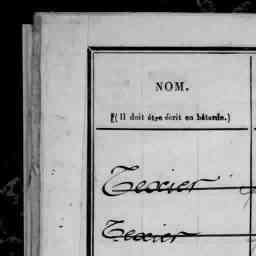 NOM.
(Il doit être écrit en bâtarde.)
Texier
Texier